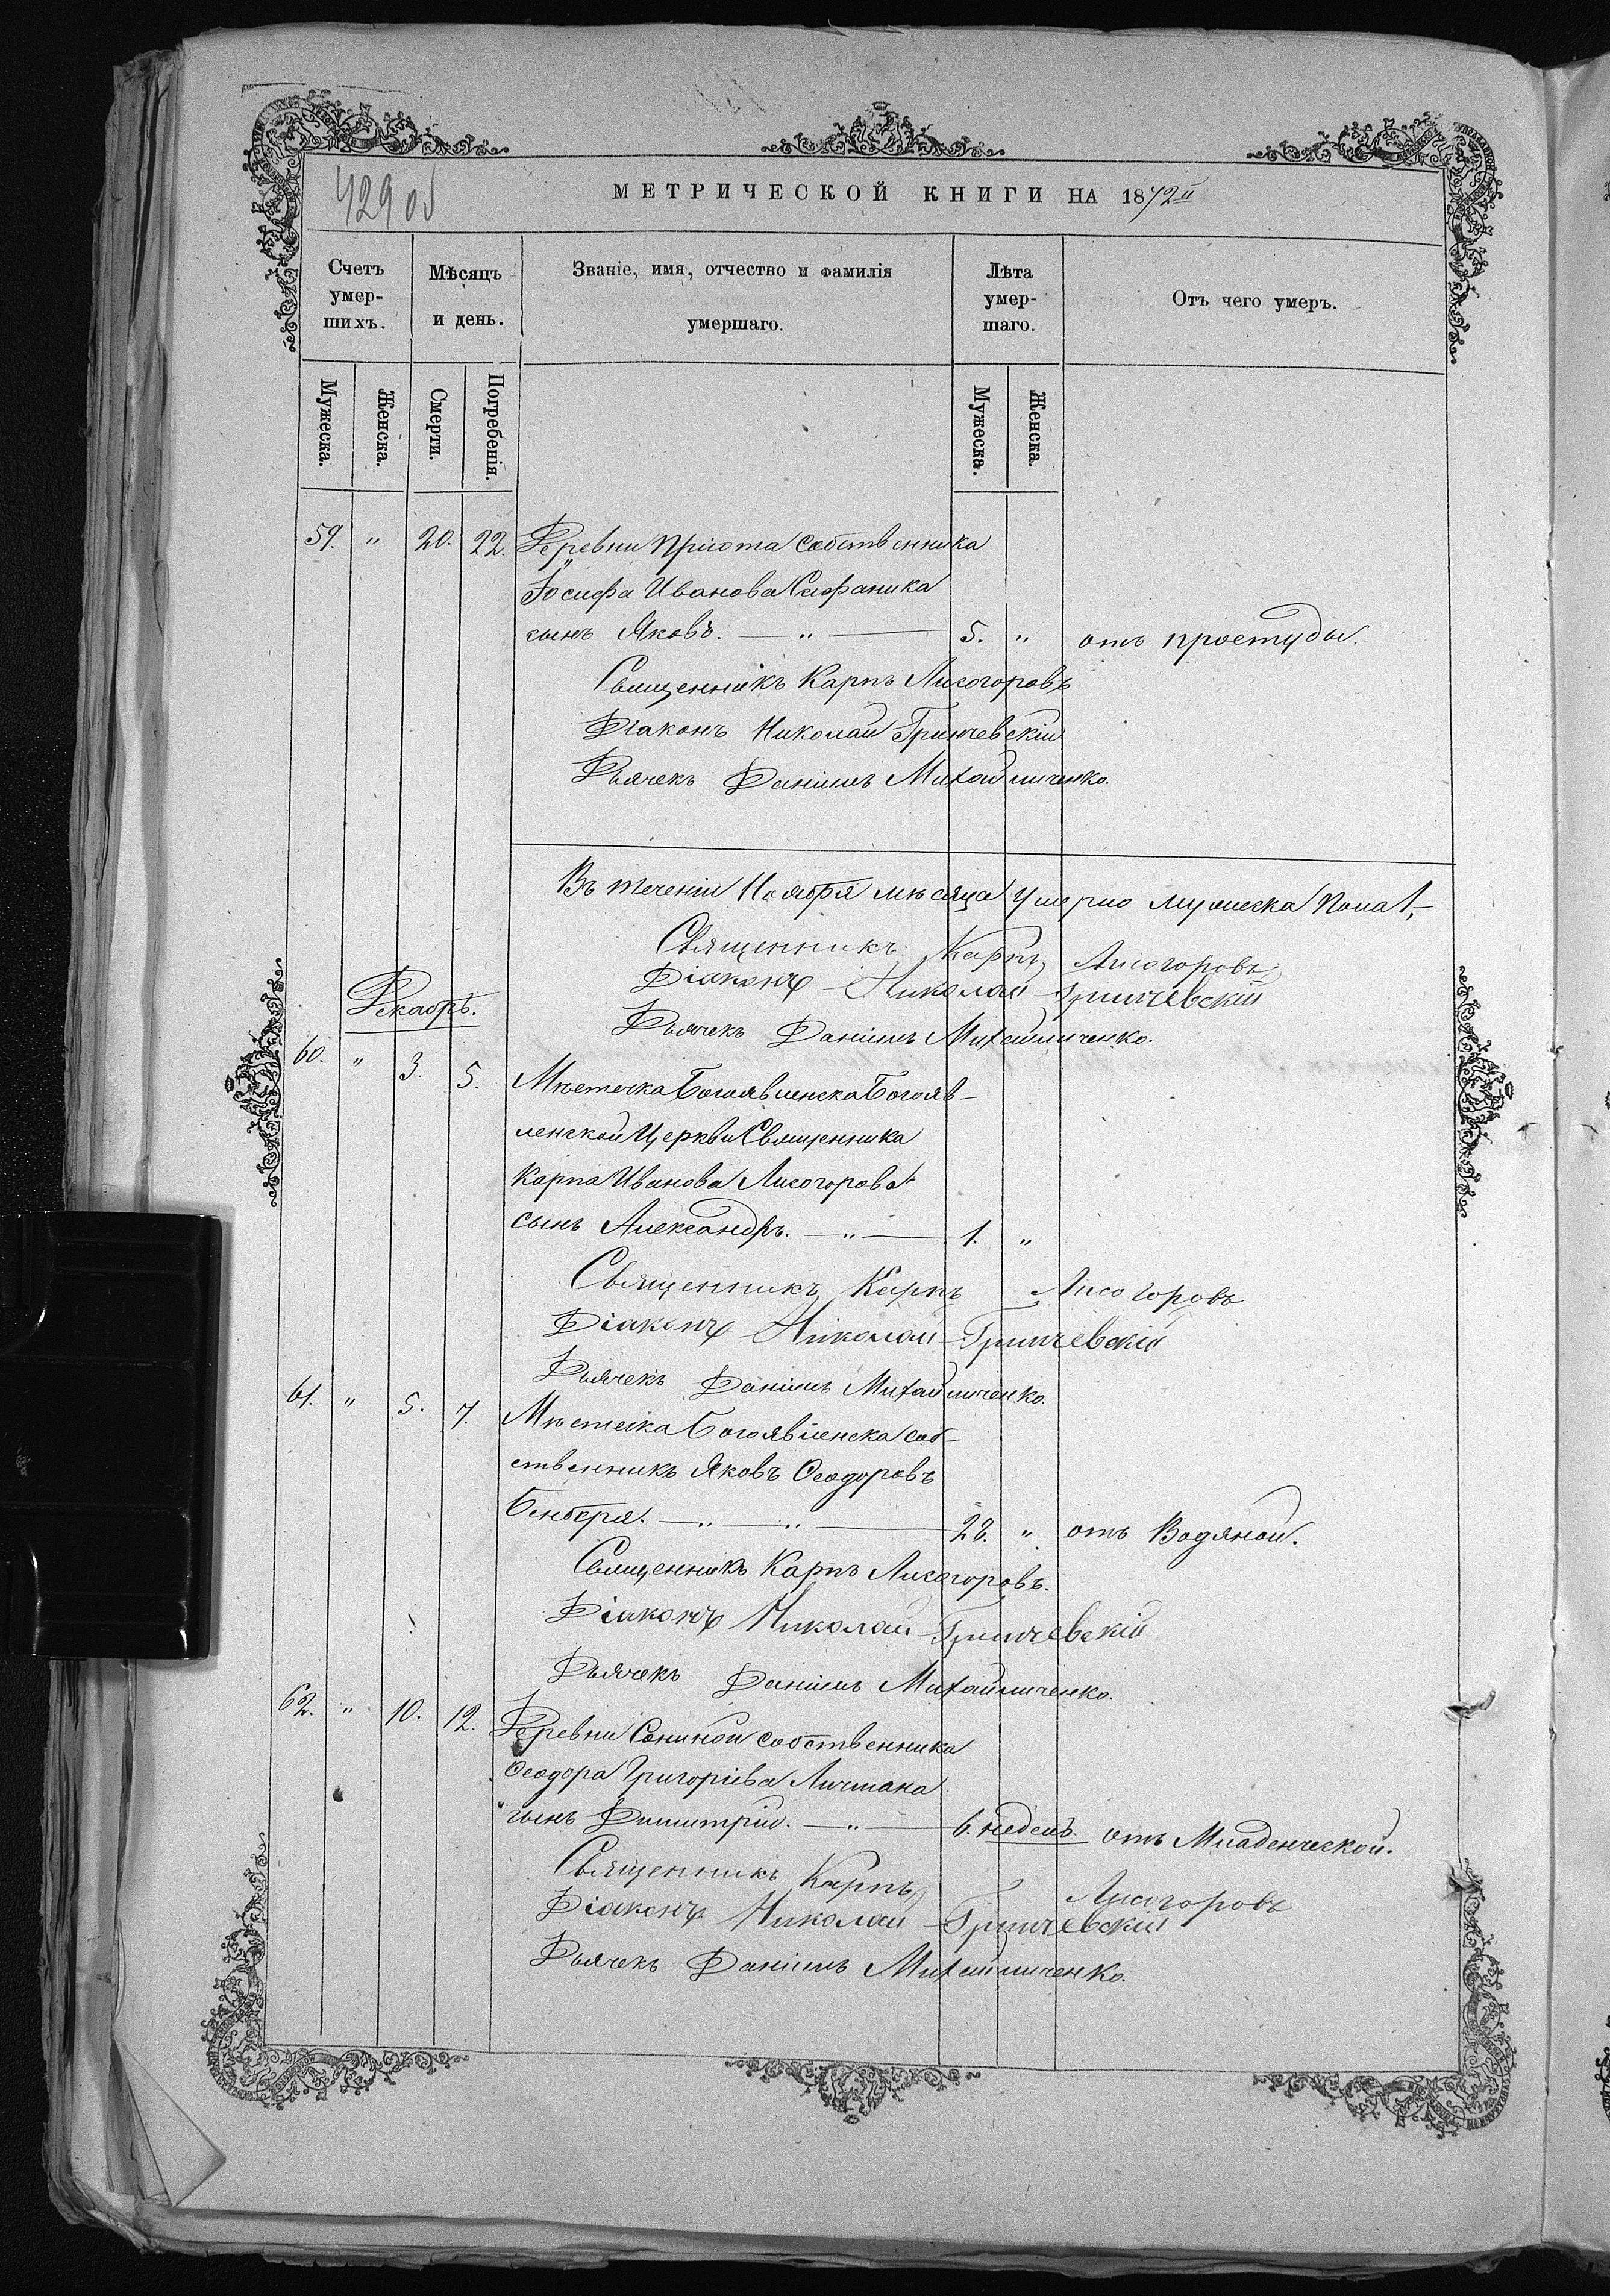 429 об
МЕТРИЧЕСКОЙ КНИГИ НА 1872й
Счетъ умер-шихъ. Мѣсяцъ и день. Званіе, имя, отчество и фамилія умершаго. Лѣта умер-шаго. Отъ чего умеръ.
Мужеска. Женска. Смерти. Погребенія. Мужеска. Женска.
59. " 20. 22. Деревни Пріюта собственника
Іосифа Иванова
сынъ Яковъ. — " — 5. " отъ простуды.
Священникъ Карпъ Лисогоровъ
Діаконъ Николай Гринчевскій
Дьячекъ Даніилъ Михайличенко.
Въ теченіи Ноября мѣсяца умерло мужеска пола 1,—
Священникъ Карпъ Лисогоровъ
Діаконъ Николай Гринчевскій
Декабрь.
Дьячекъ Даніилъ Михайличенко.
60. " 3. 5. Мѣстечка Богоявленска Богояв-
ленской Церкви Священника
Карпа Иванова Лисогорова
сынъ Александръ. — " — 1. "
Священникъ Карпъ Лисогоровъ
Діаконъ Николай Гринчевскій
Дьячекъ Даніилъ Михайличенко.
61. " 5. 7. Мѣстечка Богоявленска соб-
ственникъ Яковъ Ѳеодоровъ
— " — " — 28. " отъ Водяной.
Священникъ Карпъ Лисогоровъ.
Діаконъ Николай Гринчевскій
Дьячекъ Даніилъ Михайличенко.
62. " 10. 12. Деревни собственника
Ѳеодора Григоріева Личмана
сынъ Димитрій. — " — 6. недель. отъ Младенческой.
Священникъ Карпъ Лисогоровъ
Діаконъ Николай Гринчевскій
Дьячекъ Даніилъ Михайличенко.